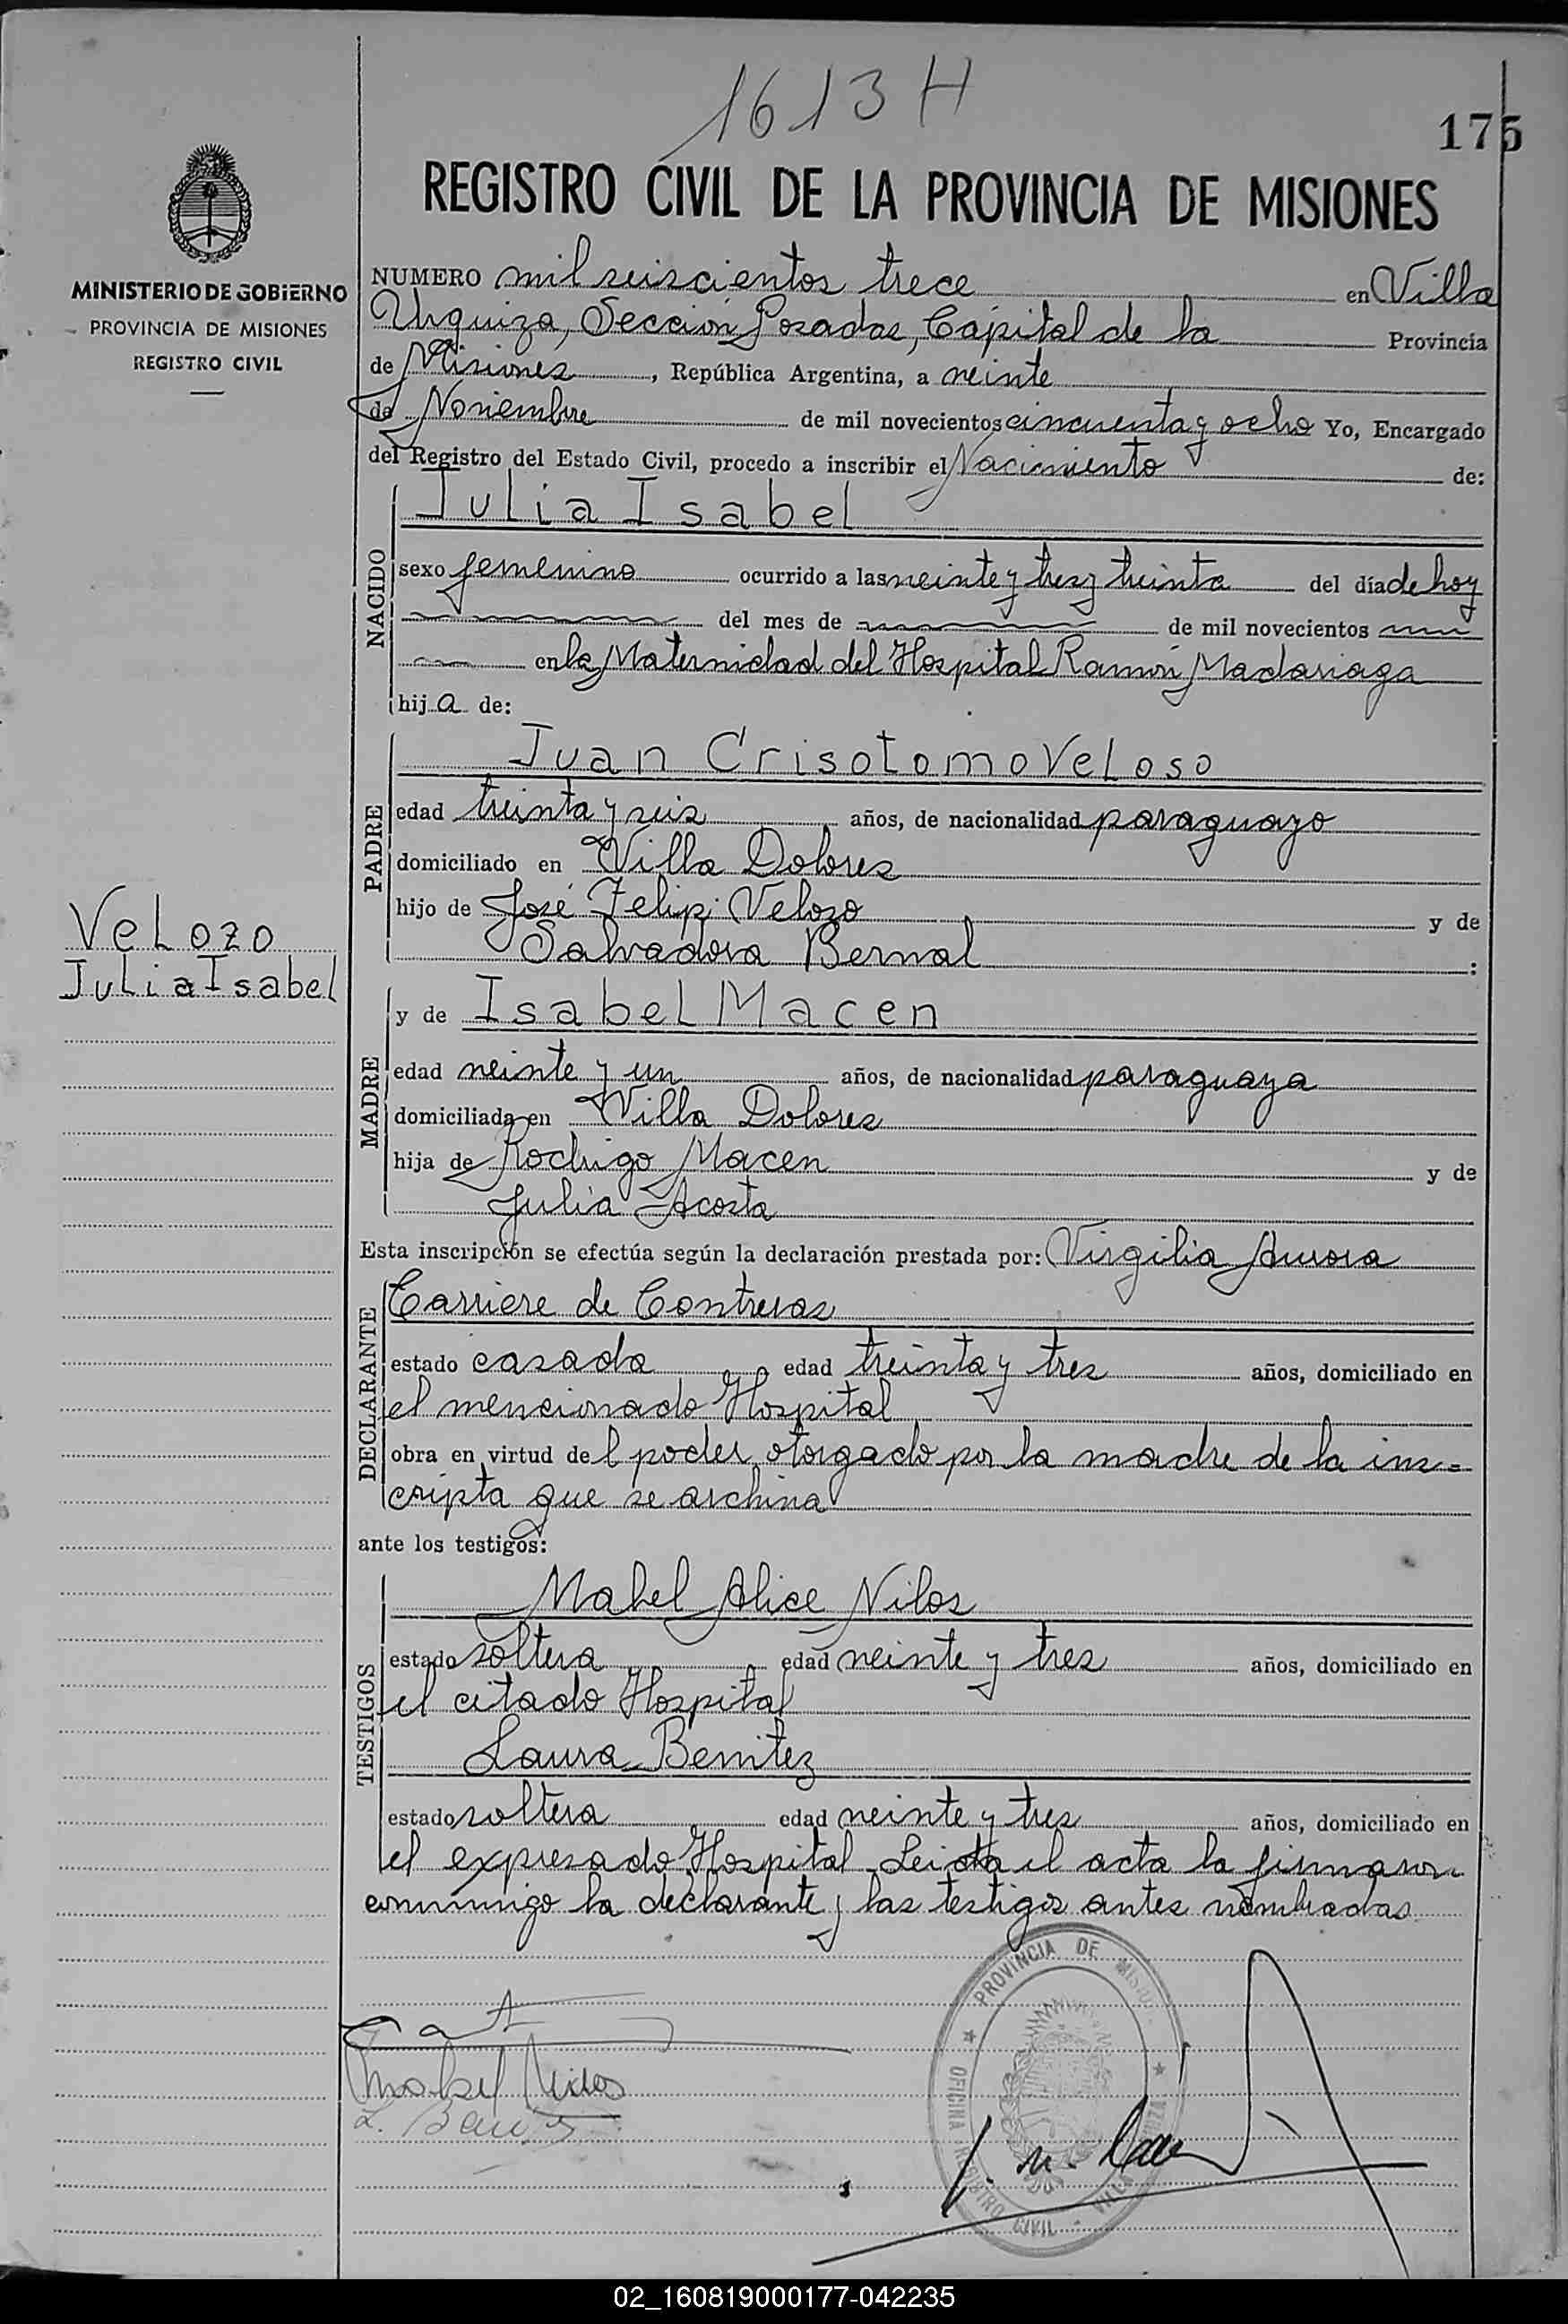 1613 H
175
REGISTRO CIVIL DE LA PROVINCIA DE MISIONES
MINISTERIO DE GOBIERNO
PROVINCIA DE MISIONES
REGISTRO CIVIL
NUMERO mil seiscientos trece en Villa
Urquiza, Sección Posadas, Capital de la Provincia
de Misiones, República Argentina, a veinte
de Noviembre de mil novecientos cincuenta y ocho Yo, Encargado
del Registro del Estado Civil, procedo a inscribir el Nacimiento de:
NACIDO
Julia Isabel
sexo femenino ocurrido a las veinte y tres y treinta del día de hoy
del mes de de mil novecientos
en la Maternidad del Hospital Ramón Madariaga
hija de:
PADRE
Juan Crisotomo Veloso
edad treinta y seis años, de nacionalidad paraguayo
domiciliado en Villa Dolores
hijo de José Felipi Velozo y de
Salvadora Bernal :
Velozo
Julia Isabel
MADRE
y de Isabel Macen
edad veinte y un años, de nacionalidad paraguaya
domiciliada en Villa Dolores
hija de Rodrigo Macen y de
Julia Acosta
Esta inscripción se efectúa según la declaración prestada por: Virgilia Aurora
DECLARANTE
Carriere de Contreras
estado casada edad treinta y tres años, domiciliado en
el mencionado Hospital
obra en virtud del poder otorgado por la madre de la ins-
cripta que se archiva
ante los testigos:
TESTIGOS
Mabel Alice Nilos
estado soltera edad veinte y tres años, domiciliado en
el citado Hospital
Laura Benitez
estado soltera edad veinte y tres años, domiciliado en
el expresado Hospital. Leida el acta la firmaron
conmigo la declarante y las testigos antes nombradas
PROVINCIA DE MISIONES
OFICINA REGISTRO CIVIL - VILLA
Mabel Nilos
02_160819000177-042235